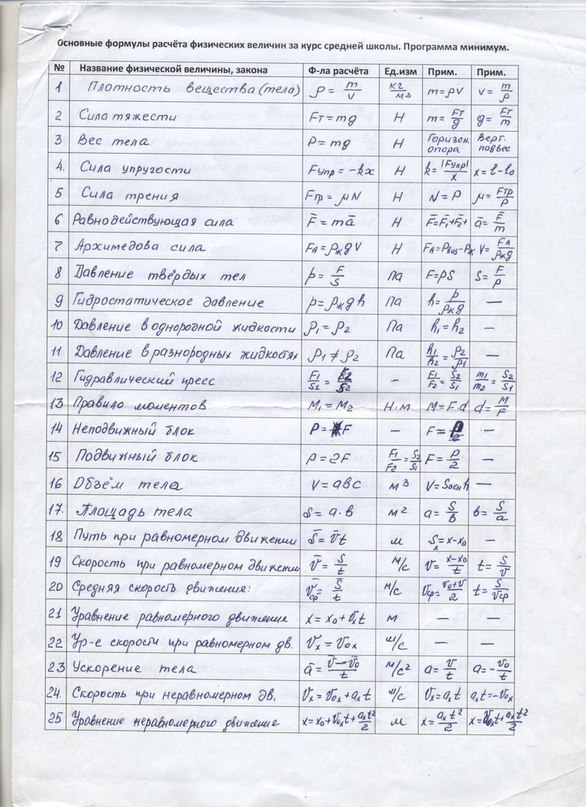 Основные формулы расчёта физических величин за курс средней школы. Программа минимум.
№ Название физической величины, закона Ф-ла расчёта Ед.изм Прим. Прим.
1 Плотность вещества (тела) ρ = m/V кг/м³ m = ρV V = m/ρ
2 Сила тяжести Fт = mg Н m = Fт/g g = Fт/m
3 Вес тела P = mg Н Горизон. опора Верт. подвес
4. Сила упругости Fупр = -kx Н k = |Fупр|/x x = l - l₀
5 Сила трения Fтр = μN Н N = P μ = Fтр/P
6 Равнодействующая сила F̄ = mā Н F̄ = F̄₁ + F̄₂ + ā = F̄/m
7 Архимедова сила FА = ρжgV Н FА = Pвоз - Pж V = FА/ρжg
8 Давление твёрдых тел p = F/S Па F = pS S = F/p
9 Гидростатическое давление p = ρжgh Па h = p/ρжg —
10 Давление в однородной жидкости p₁ = p₂ Па h₁ = h₂ —
11 Давление в разнородных жидкостях p₁ ≠ p₂ Па h₁/h₂ = ρ₂/ρ₁ —
12 Гидравлический пресс F₁/S₁ = F₂/S₂ - F₁/F₂ = S₂/S₁ m₁/m₂ = S₂/S₁
13 Правило моментов M₁ = M₂ Н·м M = F·d d = M/F
14 Неподвижный блок P = F - F = P —
15 Подвижный блок P = 2F F₁/F₂ = S₂/S₁ F = P/2 —
16 Объём тела V = abc м³ V = Sосн h —
17. Площадь тела S = a·b м² a = S/b b = S/a
18 Путь при равномерном движении S̄ = v̄t м Sx = x - x₀ —
19 Скорость при равномерном движении v̄ = S̄/t м/с v = x-x₀/t t = S/v
20 Средняя скорость движения: v̄ср = S̄/t м/с vср = v₀+v/2 t = S/vср
21 Уравнение равномерного движения x = x₀ + vₓt м — —
22 Ур-е скорости при равномерном дв. vₓ = v₀ₓ м/с — —
23 Ускорение тела ā = v̄-v̄₀/t м/с² a = v/t a = -v₀/t
24. Скорость при неравномерном дв. vₓ = v₀ₓ + aₓt м/с vₓ = aₓt aₓt = -v₀ₓ
25 Уравнение неравномерного движения x = x₀ + v₀ₓt + aₓt²/2 м x = aₓt²/2 x = v₀ₓt + aₓt²/2